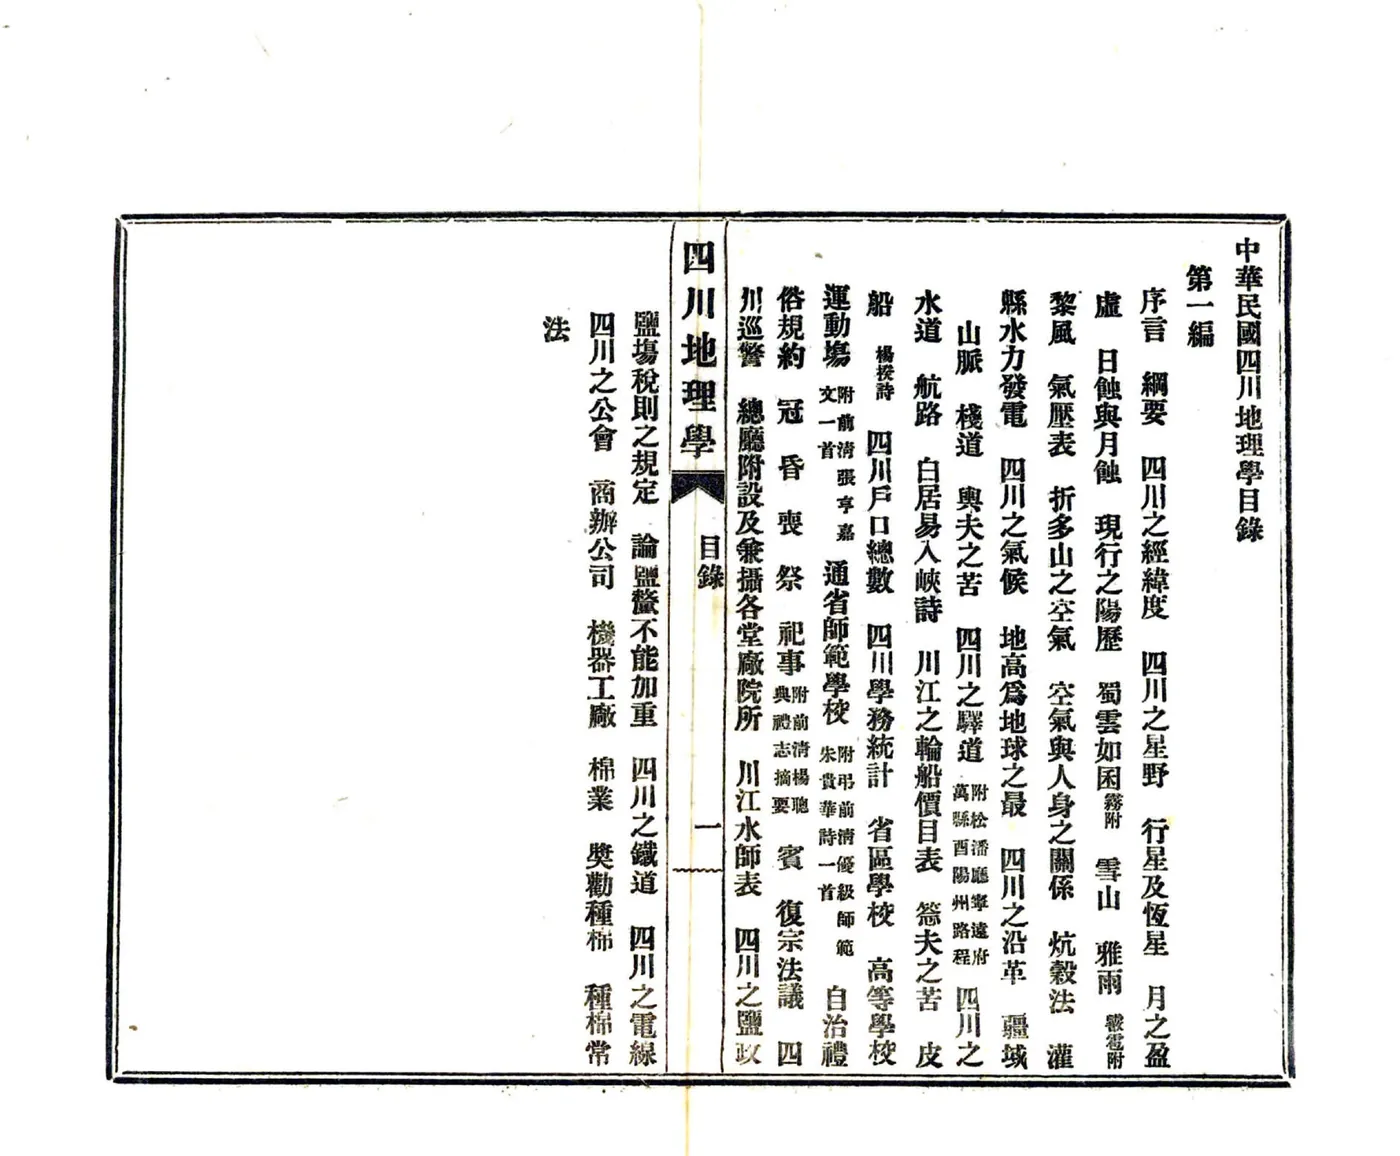 中華民國四川地理學目錄
第一編
序言　綱要　四川之經緯度　四川之星野　行星及恆星　月之盈
虛　日蝕與月蝕　現行之陽歷　蜀雲如囷霧附　雪山　雅雨　霰雹附
黎風　氣壓表　折多山之空氣　空氣與人身之關係　炕穀法　灌
縣水力發電　四川之氣候　地高爲地球之最　四川之沿革　疆域
山脈　棧道　輿夫之苦　四川之驛道　附松潘廳寧遠府萬縣酉陽州路程　四川之
水道　航路　白居易入峽詩　川江之輪船價目表　縴夫之苦　皮
船　楊揆詩　四川戶口總數　四川學務統計　省區學校　高等學校
運動塲　附前清張亨嘉文一首　通省師範學校　附弔前淸優級師範朱貴華詩一首　自治禮
俗規約　冠　昏　喪　祭　祀事　附前清楊聰典禮志摘要　賓　復宗法議　四
川巡警　總廳附設及兼攝各堂廠院所　川江水師表　四川之鹽政
四川地理學
目錄
一
鹽塲稅則之規定　論鹽釐不能加重　四川之鐵道　四川之電線
四川之公會　商辦公司　機器工廠　棉業　奬勸種棉　種棉常
法